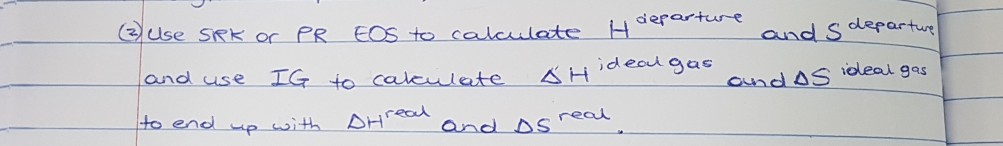 (2) Use SRK or PR EOS to calculate H departure and S departure
and use IG to calculate ΔH ideal gas and ΔS ideal gas
to end up with ΔH real and ΔS real.